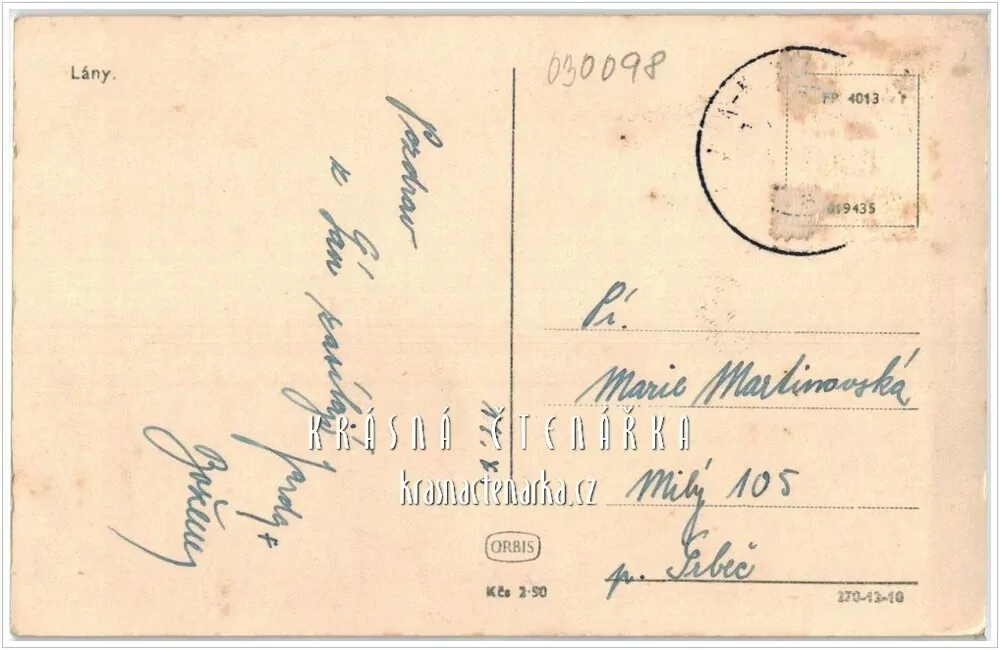 Lány.
030098
FP 4013
019435
Pozdrav
z Lán zasílají
Božena
Pí.
Marie Martinovská
Milý 105
p. Srbeč
KRÁSNÁ ČTENÁŘKA
krasnactenarka.cz
ORBIS
Kčs 2·50
270-13-10